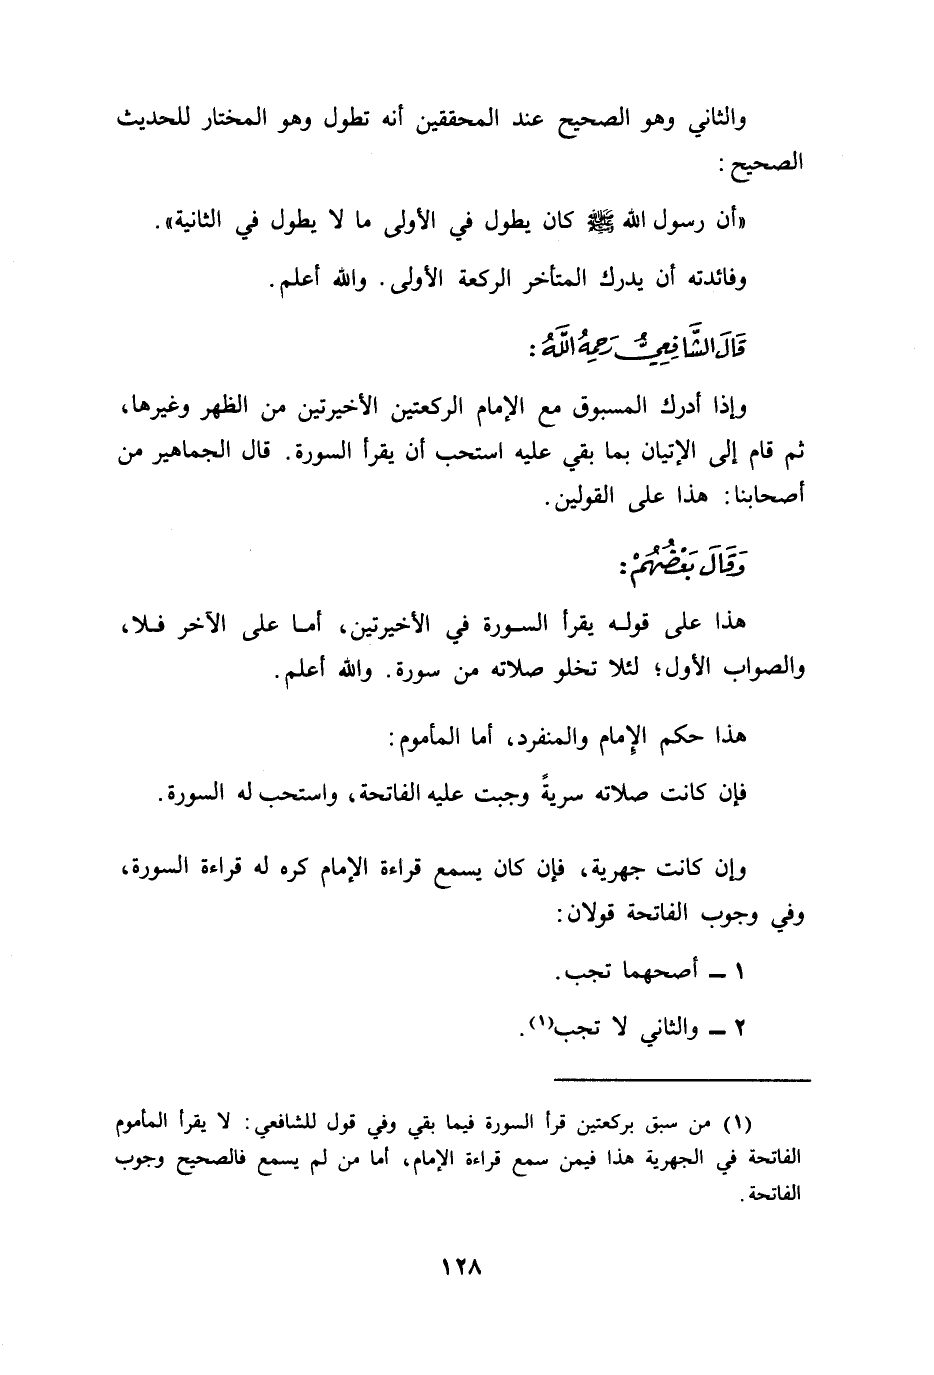 والثاني وهو الصحيح عند المحققين أنه تطول وهو المختار للحديث
الصحيح :
«أن رسول الله ﷺ كان يطول في الأولى ما لا يطول في الثانية» .
وفائدته أن يدرك المتأخر الركعة الأولى . والله أعلم .
قَالَ الشَّافِعِيُّ رَحِمَهُ اللَّهُ :
وإذا أدرك المسبوق مع الإمام الركعتين الأخيرتين من الظهر وغيرها،
ثم قام إلى الإتيان بما بقي عليه استحب أن يقرأ السورة . قال الجماهير من
أصحابنا : هذا على القولين .
وَقَالَ بَعْضُهُمْ :
هذا على قوله يقرأ السورة في الأخيرتين، أما على الآخر فلا،
والصواب الأول؛ لئلا تخلو صلاته من سورة . والله أعلم .
هذا حكم الإمام والمنفرد، أما المأموم :
فإن كانت صلاته سريةً وجبت عليه الفاتحة، واستحب له السورة .
وإن كانت جهرية، فإن كان يسمع قراءة الإمام كره له قراءة السورة،
وفي وجوب الفاتحة قولان :
١ ــ أصحهما تجب .
٢ ــ والثاني لا تجب(١) .
(١) من سبق بركعتين قرأ السورة فيما بقي وفي قول للشافعي : لا يقرأ المأموم
الفاتحة في الجهرية هذا فيمن سمع قراءة الإمام، أما من لم يسمع فالصحيح وجوب
الفاتحة .
١٢٨